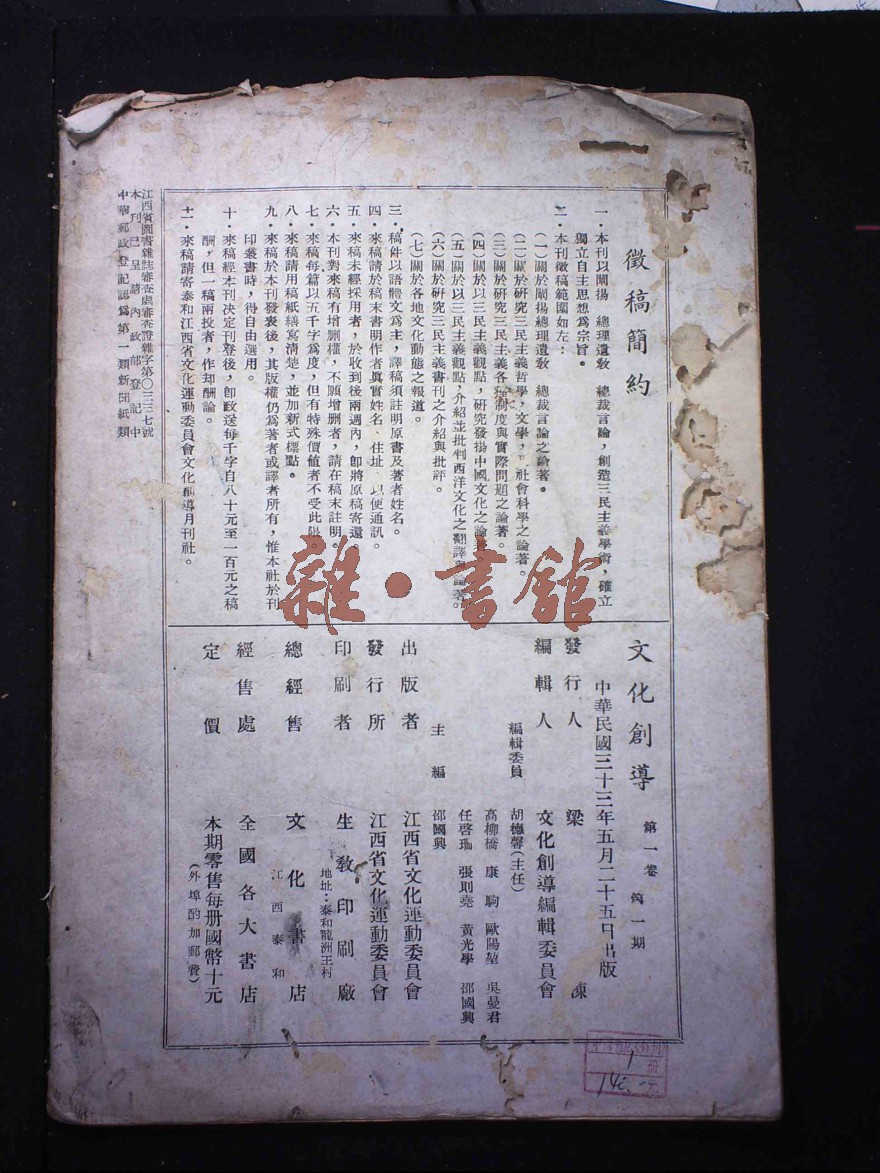 徵稿簡約
一．本刊以闡揚　總理遺敎　總裁言論，創造三民主義學術，確立
獨立自主思想爲宗旨。
二．本刊徵稿範圍如左：
（一）關於闡揚總理遺敎　總裁言論之論著。
（二）關於研究三民主義哲學，文學，社會科學之論著。
（三）關於研究三民主義各種制度與實際問題之論著。
（四）關於以三民主義觀點，研究發揚中國文化之論著
（五）關於以三民主義觀點，介紹並批判西洋文化之翻譯與論著。
（六）關於研究三民主義書刊之介紹與批評。
（七）關於各地文化動態之報道。
三．稿件以語體文爲主，譯稿須註明原書及著者姓名。
四．來稿請於稿末書明作者眞實姓名．住址，以便通訊。
五．來稿未經採用者，於收到後兩週內，卽將原稿寄還。
六．本刊對來稿有增删權，不願增删者，請在稿末註明。
七．來稿每篇以五千字爲度，但有特殊價値者不受此限。
八．來稿請用稿紙繕寫淸楚，並加新式標點。
九．來稿於本刊發表後，其版權仍爲著者或譯者所有，惟本社於刊
印叢書時，得自由選用。
十．來稿經本刊决定刊登後，卽致送每千字自八十元至一百元之稿
酬，但一稿兩投者，作却酬論。
十一．來稿請寄泰和江西省文化運動委員會文化創導月刊社。
江西省圖書雜誌審查處審查證雜字第〇三三七號
本刊已呈請內政部登記中
中華郵政登記認爲第一類新聞紙類
文化創導　第一卷　第一期
中華民國三十三年五月二十五日出版
發行人　梁
編輯人　文化創導編輯委員會
編輯委員　胡德馨（主任）
高柳橋　康駒　歐陽堃　吳曼君
任啓珊　張則堯　黃光學　邵國興
主編　邵國興
出版者　江西省文化運動委員會
發行所　江西省文化運動委員會
印刷者　生敎印刷廠
地址：泰和龍洲王村
總經售　文化書店
江西泰和
經售處　全國各大書店
定價　本期零售每册國幣十元
（外埠酌加郵費）
雜·書館
1册
元